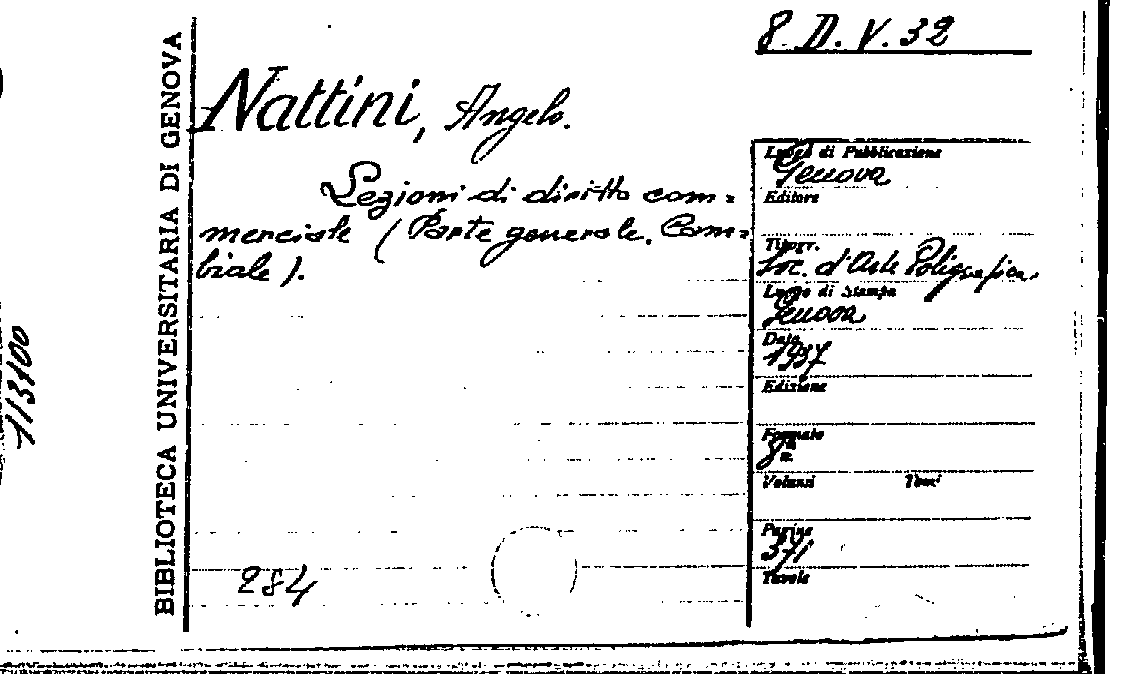 8. D. V. 32
BIBLIOTECA UNIVERSITARIA DI GENOVA
Nattini, Angelo.
Lezioni di diritto com=
merciale (Parte generale. Cam=
biale).
284
Luogo di Pubblicazione
Genova
Editore
Tipogr.
Soc. d'Arte Poligrafica.
Luogo di Stampa
Genova
Data
1937
Edizione
Formato
8°
Volumi Tomi
Pagine
371
Tavole
113100